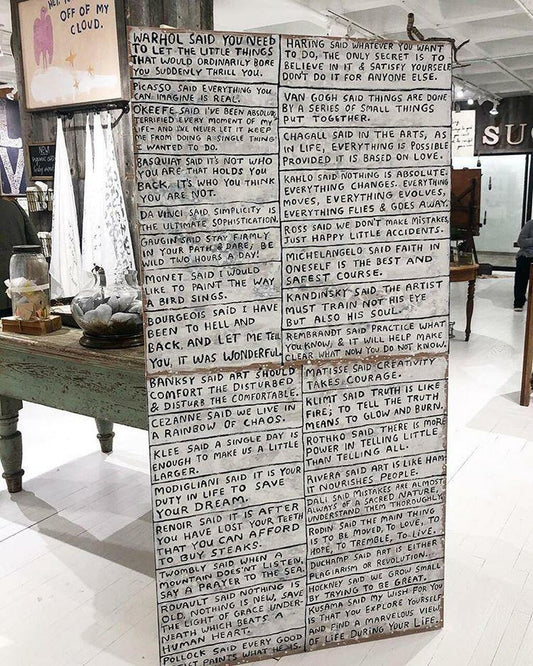 OFF OF MY
CLOUD.
WARHOL SAID YOU NEED
TO LET THE LITTLE THINGS
THAT WOULD ORDINARILY BORE
YOU SUDDENLY THRILL YOU.
PICASSO SAID EVERYTHING YOU
CAN IMAGINE IS REAL.
OKEEFE SAID I'VE BEEN ABSOLUTE
TERRIFIED EVER MOMENT OF MY
LIFE- AND I'VE NEVER LET IT KEEP
ME FROM DOING A SINGLE THING
I WANTED TO DO.
BASQUIAT SAID IT'S NOT WHO
YOU ARE THAT HOLDS YOU
BACK, IT'S WHO YOU THINK
YOU ARE NOT.
DA VINCI SAID SIMPLICITY IS
THE ULTIMATE SOPHISTICATION.
GAUGIN SAID STAY FIRMLY
IN YOUR PATH & DARE; BE
WILD TWO HOURS A DAY!
MONET SAID I WOULD
LIKE TO PAINT THE WAY
A BIRD SINGS.
BOURGEOIS SAID I HAVE
BEEN TO HELL AND
BACK, AND LET ME TELL
YOU, IT WAS WONDERFUL.
BANKSY SAID ART SHOULD
COMFORT THE DISTURBED
& DISTURB THE COMFORTABLE.
CEZANNE SAID WE LIVE IN
A RAINBOW OF CHAOS.
KLEE SAID A SINGLE DAY IS
ENOUGH TO MAKE US A LITTLE
LARGER.
MODIGLIANI SAID IT IS YOUR
DUTY IN LIFE TO SAVE
YOUR DREAM.
RENOIR SAID IT IS AFTER
YOU HAVE LOST YOUR TEETH
THAT YOU CAN AFFORD
TO BUY STEAKS.
TWOMBLY SAID WHEN A
MOUNTAIN DOESN'T LISTEN,
SAY A PRAYER TO THE SEA.
ROUAULT SAID NOTHING IS
OLD, NOTHING IS NEW, SAVE
THE LIGHT OF GRACE UNDER
NEATH WHICH BEATS A
HUMAN HEART.
POLLOCK SAID EVERY GOOD
PAINTS WHAT HE IS.
HARING SAID WHATEVER YOU WANT
TO DO, THE ONLY SECRET IS TO
BELIEVE IN IT & SATISFY YOURSELF
DON'T DO IT FOR ANYONE ELSE.
VAN GOGH SAID THINGS ARE DONE
BY A SERIES OF SMALL THINGS
PUT TOGETHER.
CHAGALL SAID IN THE ARTS, AS
IN LIFE, EVERYTHING IS POSSIBLE
PROVIDED IT IS BASED ON LOVE.
KAHLO SAID NOTHING IS ABSOLUTE.
EVERYTHING CHANGES. EVERYTHING
MOVES, EVERYTHING EVOLVES,
EVERYTHING FLIES & GOES AWAY.
ROSS SAID WE DON'T MAKE MISTAKES,
JUST HAPPY LITTLE ACCIDENTS.
MICHELANGELO SAID FAITH IN
ONESELF IS THE BEST AND
SAFEST COURSE.
KANDINSKY SAID THE ARTIST
MUST TRAIN NOT HIS EYE
BUT ALSO HIS SOUL.
REMBRANDT SAID PRACTICE WHAT
YOU KNOW, & IT WILL HELP MAKE
CLEAR WHAT NOW YOU DO NOT KNOW.
MATISSE SAID CREATIVITY
TAKES COURAGE.
KLIMT SAID TRUTH IS LIKE
FIRE; TO TELL THE TRUTH
MEANS TO GLOW AND BURN.
ROTHKO SAID THERE IS MORE
POWER IN TELLING LITTLE
THAN TELLING ALL.
RIVERA SAID ART IS LIKE HAM:
IT NOURISHES PEOPLE.
DALI SAID MISTAKES ARE ALMOST
ALWAYS OF A SACRED NATURE,
UNDERSTAND THEM THOROUGHLY.
RODIN SAID THE MAIN THING
IS TO BE MOVED, TO LOVE, TO
HOPE, TO TREMBLE, TO LIVE.
DUCHAMP SAID ART IS EITHER
PLAGIARISM OR REVOLUTION.
HOCKNEY SAID WE GROW SMALL
BY TRYING TO BE GREAT.
KUSAMA SAID MY WISH FOR YOU
IS THAT YOU EXPLORE YOURSELF
AND FIND A MARVELOUS VIEW
OF LIFE DURING YOUR LIFE.
SU